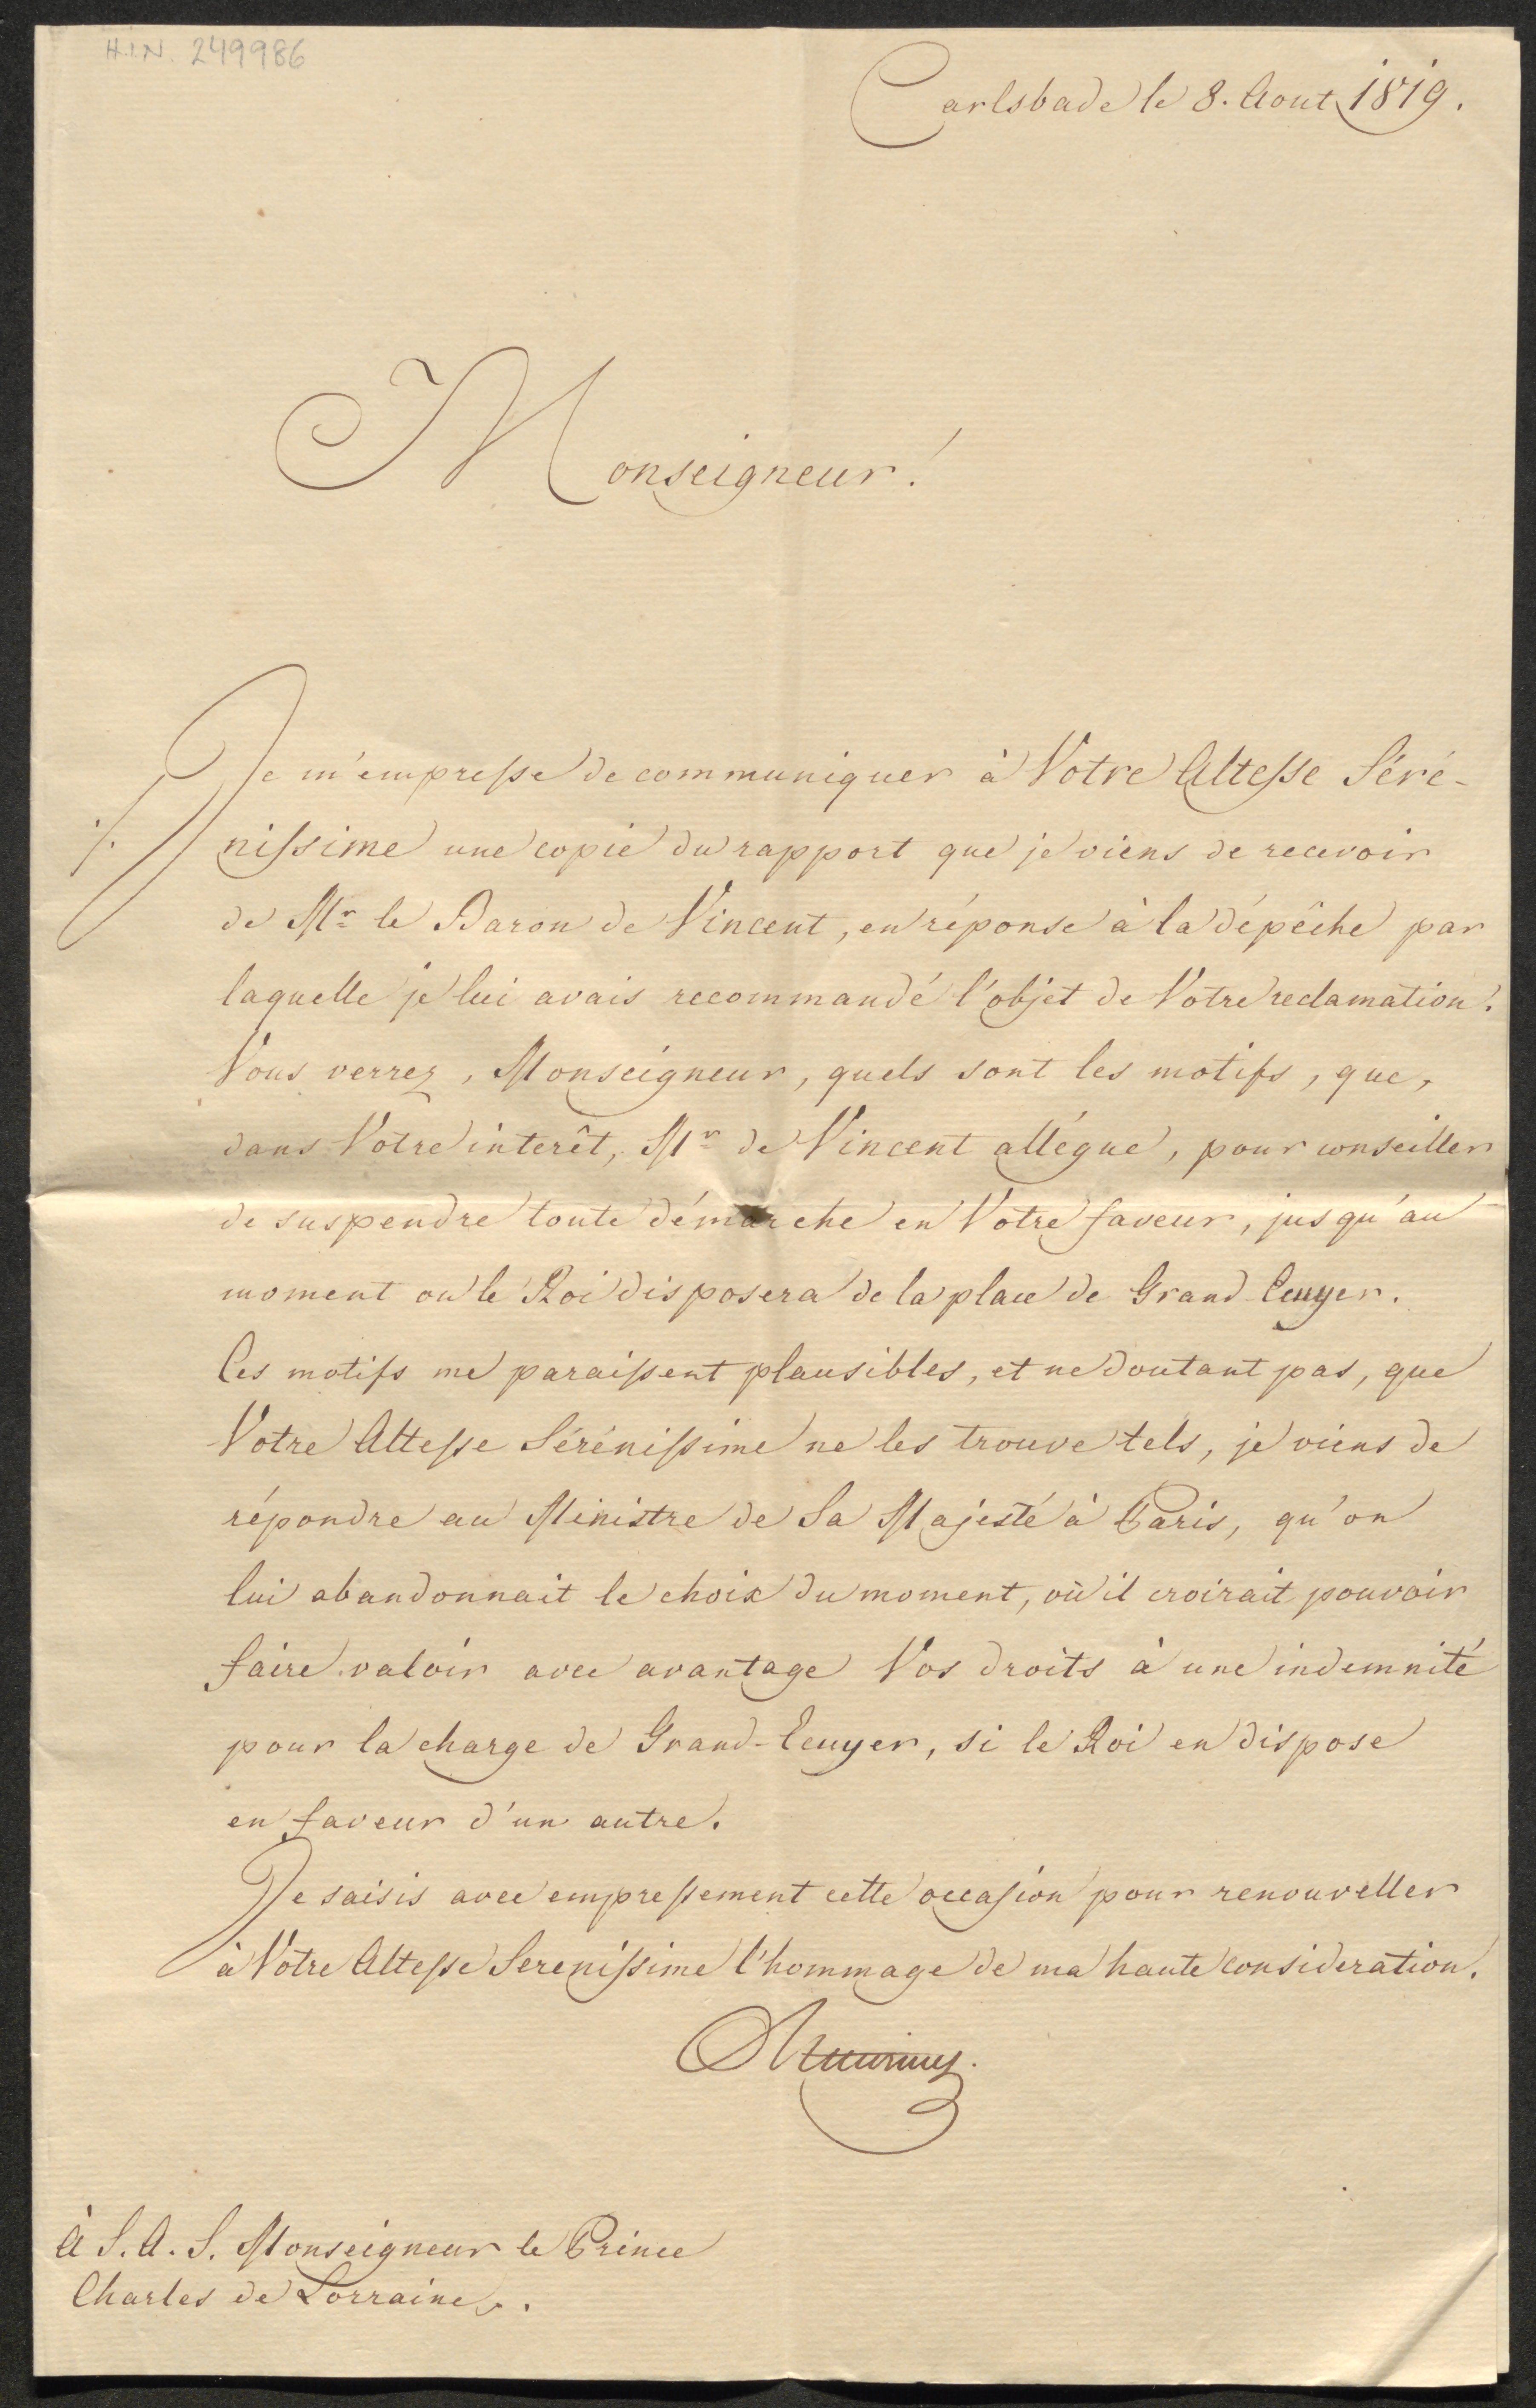 H.I.N. 249986
Carlsbade le 8. Aout 1819.
Monseigneur!
Je m'empresse de communiquer à Votre Altesse Séré-
nissime une copie du rapport que je viens de recevoir
de Mr. le Baron de Vincent, en réponse à la dépêche par
laquelle je lui avais recommandé l'objet de Votre reclamation.
Vous verrez, Monseigneur, quels sont les motifs, que,
dans Votre interêt, Mr. de Vincent allégue, pour conseiller
de suspendre toute démarche en Votre faveur, jusqu'au
moment ou le Roi disposera de la place de Grand Ecuyer.
Ces motifs me paraissent plausibles, et ne doutant pas, que
Votre Altesse Sérénissime ne les trouve tels, je viens de
répondre au Ministre de Sa Majesté à Paris, qu'on
lui abandonnait le choix du moment, où il croirait pouvoir
faire valoir avec avantage Vos droits à une indemnité
pour la charge de Grand-Ecuyer, si le Roi en dispose
en faveur d'un autre.
Je saisis avec empressement cette occasion pour renouveller
à Votre Altesse Serenissime l'hommage de ma haute consideration.
À S. A. S. Monseigneur le Prince
Charles de Lorraine.